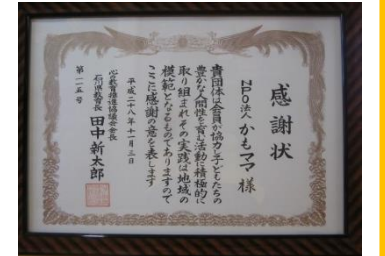 感謝状
NPO法人 かもママ 様
貴団体は会員が協力し子どもたちの
豊かな人間性を育む活動に積極的に
取り組まれその実践は地域の
模範となるものでありますので
ここに感謝の意を表します
平成二十八年十一月三日
心の教育推進協議会会長
石川県教育長 田中新太郎
第一一五号